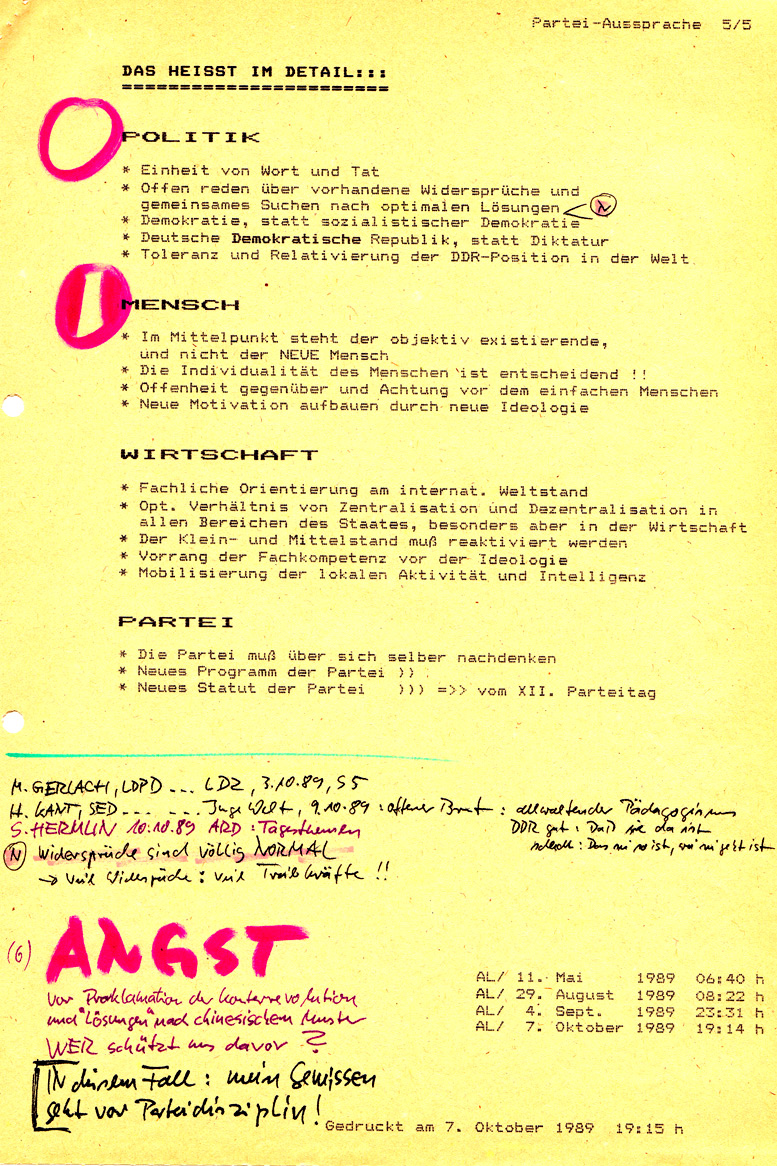 Partei-Aussprache 5/5
DAS HEISST IM DETAIL:::
=======================
POLITIK
* Einheit von Wort und Tat
* Offen reden über vorhandene Widersprüche und
gemeinsames Suchen nach optimalen Lösungen N
* Demokratie, statt sozialistischer Demokratie
* Deutsche Demokratische Republik, statt Diktatur
* Toleranz und Relativierung der DDR-Position in der Welt
MENSCH
* Im Mittelpunkt steht der objektiv existierende,
und nicht der NEUE Mensch
* Die Individualität des Menschen ist entscheidend !!
* Offenheit gegenüber und Achtung vor dem einfachen Menschen
* Neue Motivation aufbauen durch neue Ideologie
WIRTSCHAFT
* Fachliche Orientierung am internat. Weltstand
* Opt. Verhältnis von Zentralisation und Dezentralisation in
allen Bereichen des Staates, besonders aber in der Wirtschaft
* Der Klein- und Mittelstand muß reaktiviert werden
* Vorrang der Fachkompetenz vor der Ideologie
* Mobilisierung der lokalen Aktivität und Intelligenz
PARTEI
* Die Partei muß über sich selber nachdenken
* Neues Programm der Partei ))
* Neues Statut der Partei ))) =>> vom XII. Parteitag
M. GERLACH, LDPD --- LDZ, 3.10.89, S5
H. KANT, SED --- --- Junge Welt, 9.10.89 : offener Brief : allwaltender Pädagogismus
DDR gut : Daß sie da ist
schlecht : Das sie so ist, wie sie jetzt ist
S. HERMLIN 10.10.89 ARD : Tagesthemen
N Widersprüche sind völlig NORMAL
→ viele Widersprüche : viele Triebkräfte !!
(6) ANGST
vor Proklamation der Konterrevolution
und "Lösungen" nach chinesischem Muster
WER schützt uns davor ?
IN diesem Fall : mein Gewissen
geht vor Parteidisziplin !
AL/ 11. Mai 1989 06:40 h
AL/ 29. August 1989 08:22 h
AL/ 4. Sept. 1989 23:31 h
AL/ 7. Oktober 1989 19:14 h
Gedruckt am 7. Oktober 1989 19:15 h